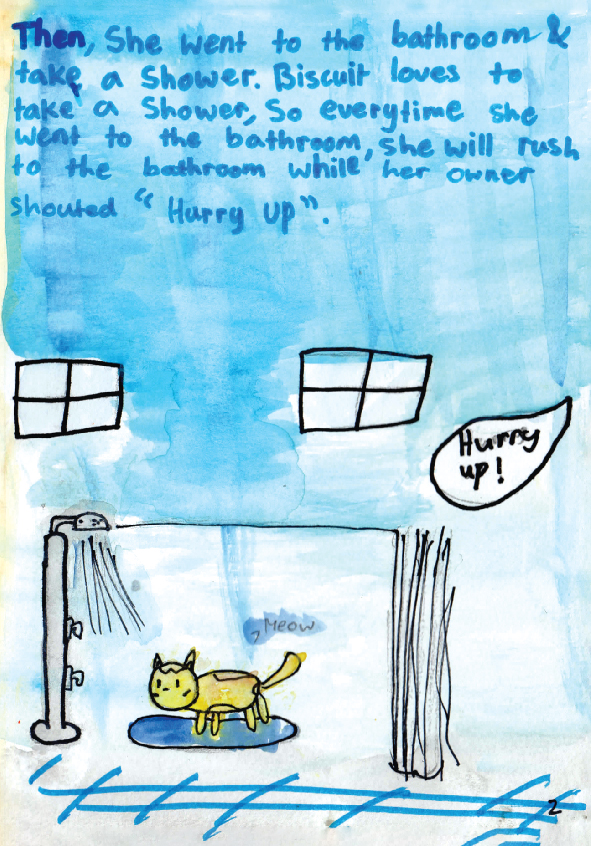 Then, She went to the bathroom &
take a Shower. Biscuit loves to
take a Shower, So everytime she
went to the bathroom, she will rush
to the bathroom while her owner
shouted “ Hurry Up”.
Hurry
up!
Meow
2